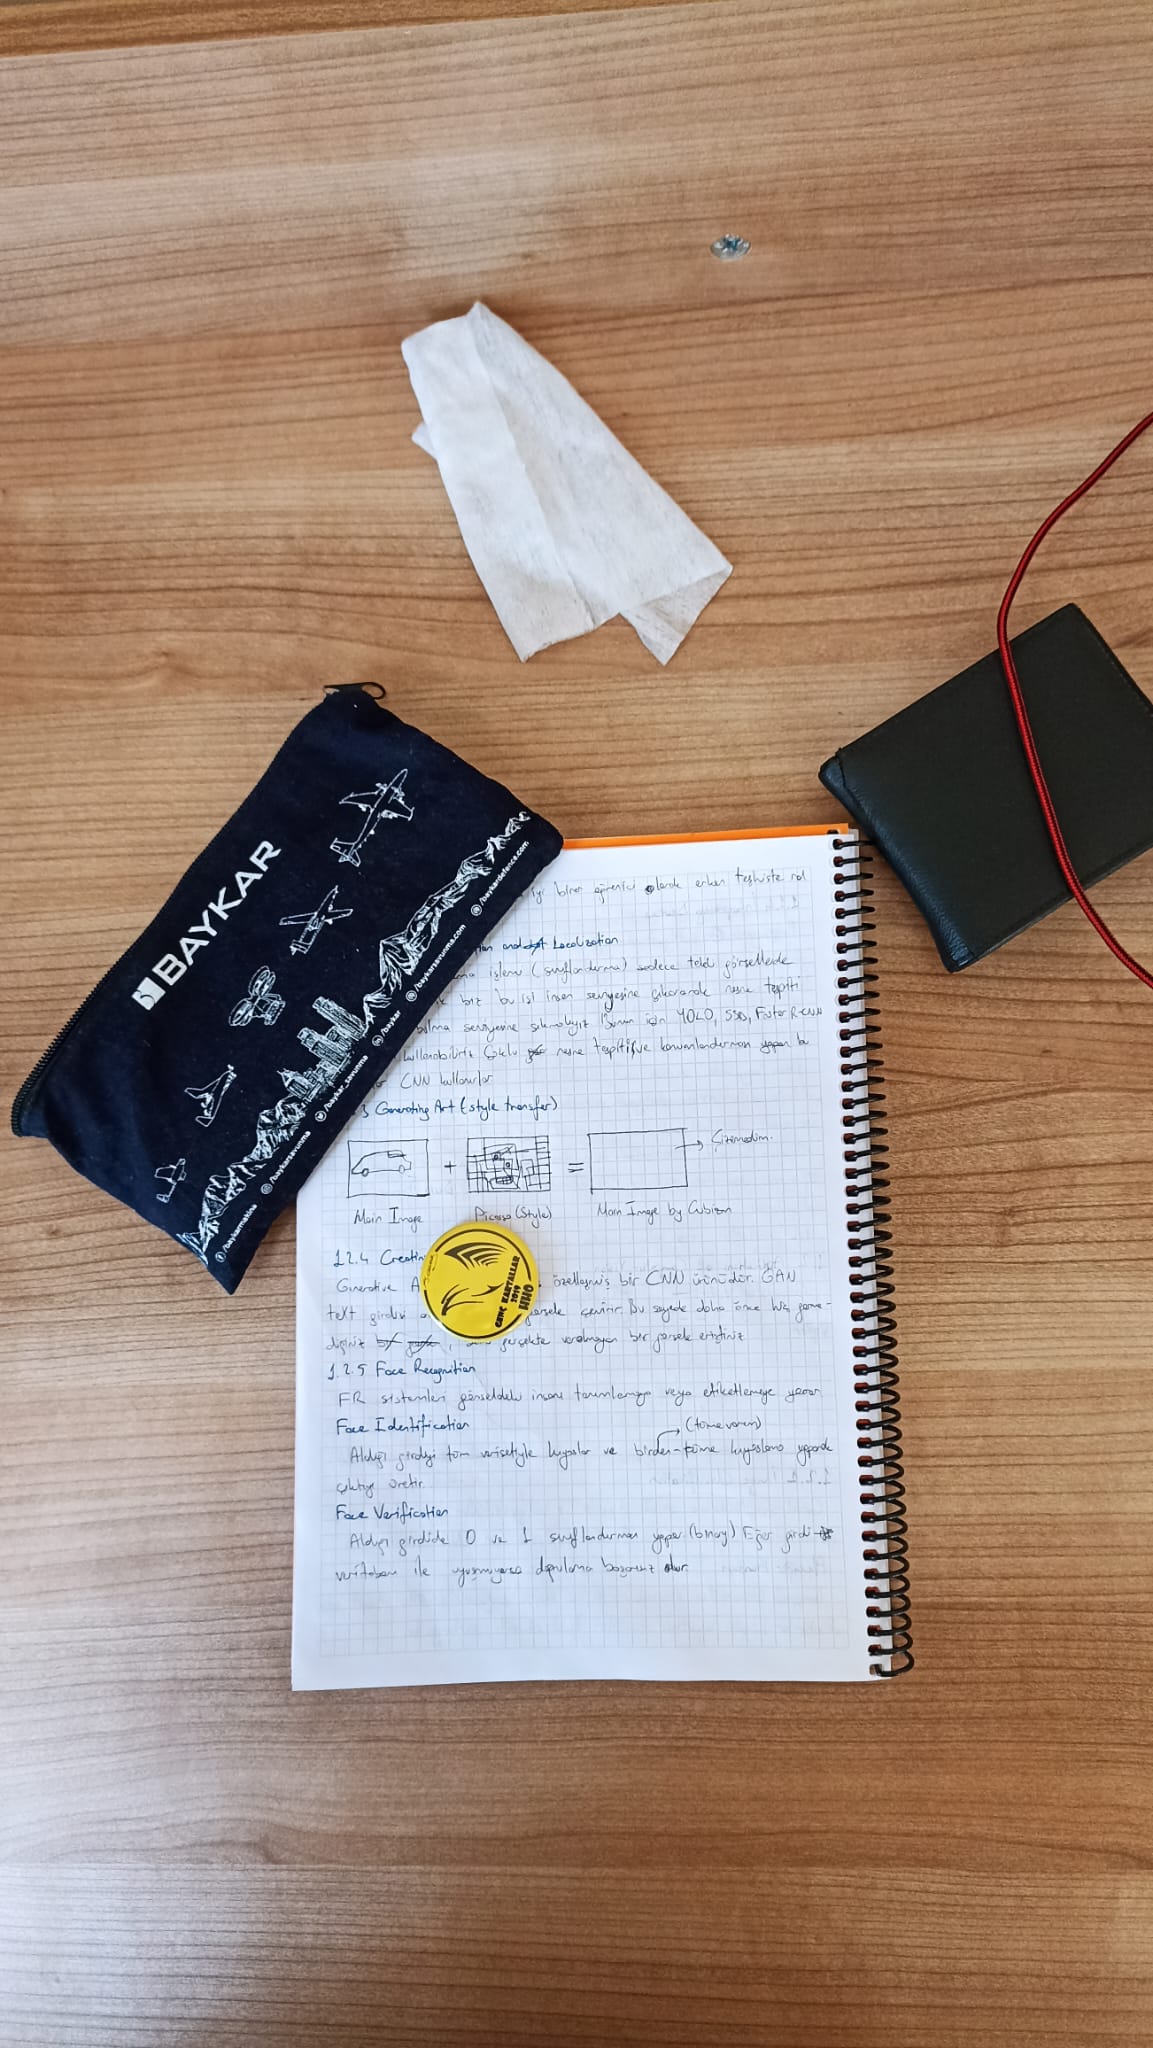 BAYKAR
/baykarmakina
/baykarsavunma
/baykar_savunma
/baykar
baykarsavunma.com
/baykardefence.com
iyi birer görenici olarak erken teşhiste rol
and Localization
işlemi (sınıflandırma) sadece tekil görsellerde
biz bu işi insan seviyesine çıkararak nesne tespiti
bulma seviyesine çıkmalıyız Bunun için YOLO, SSD, Faster R-CNN
kullanabiliriz Çoklu nesne tespiti ve konumlandırması yapan bu
CNN kullanırlar
3 Generating Art (style transfer)
+ = → Çizemedim.
Main Image Picasso (Style) Main Image by Cubizm
1.2.4 Creatin
Generative A özelleşmiş bir CNN ürünüdür. GAN
text girdisi çevirir. Bu sayede daha önce hiç görme-
diğiniz gerçekte varolmayan bir görsele erişiriz
GENÇ KARTALLAR
2019
HHO
1.2.5 Face Recognition
FR sistemleri görseldeki insanı tanımlamaya veya etiketlemeye yarar.
Face Identification
(tümevarım)
Aldığı girdiyi tüm verisetiyle kıyaslar ve birden-tüme kıyaslama yaparak
çıktıyı üretir.
Face Verification
Aldığı girdide 0 ve 1 sınıflandırması yapar (binary) Eğer girdi
veritabanı ile uyuşmuyorsa doğrulama başarısız olur.